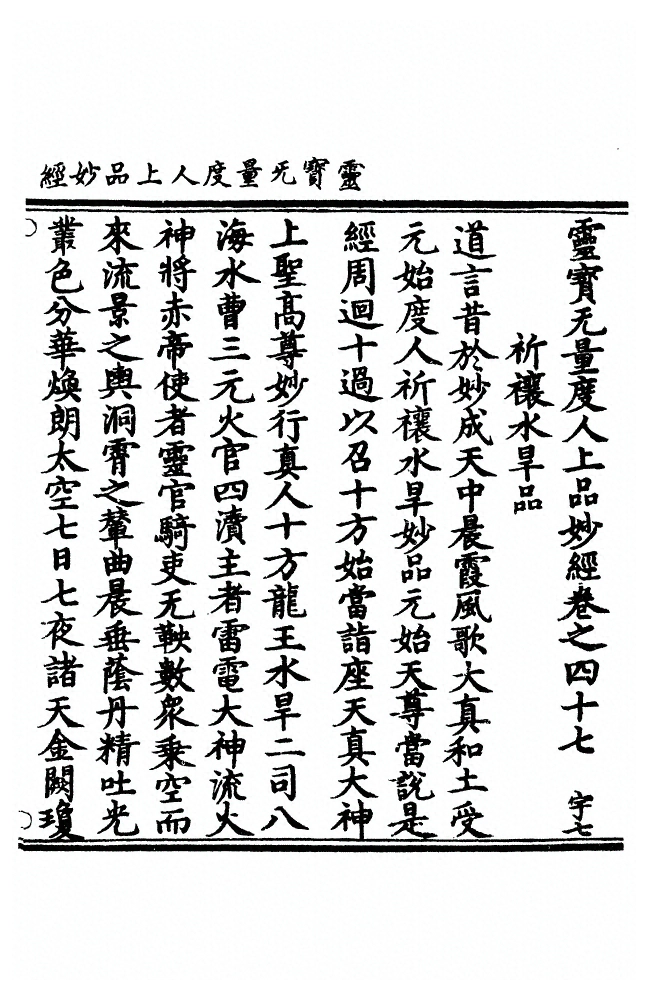 靈寶无量度人上品妙經
靈寶无量度人上品妙經卷之四十七 字七
祈禳水旱品
道言昔於妙成天中晨霞風歌大真和土受
元始度人祈禳水旱妙品元始天尊當說是
經周迴十過以召十方始當詣座天真大神
上聖高尊妙行真人十方龍王水旱二司八
海水曹三元火官四瀆主者雷電大神流火
神將赤帝使者靈官騎吏无鞅數衆乘空而
來流景之輿洞霄之輦曲晨垂蔭丹精吐光
叢色分華煥朗太空七日七夜諸天金闕瓊